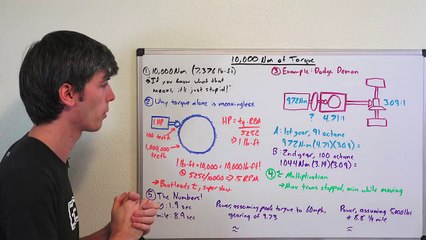 10,000 Nm of Torque
① 10,000 Nm (7,376 lb·ft)
→ "If you know what that
means, it's just stupid!"
② Why torque alone is meaningless.
1 HP
100 teeth
1,000,000
teeth
HP = tq·RPM
5252
→ 1 lb·ft
1 lb·ft × 10,000 = 10,000 lb·ft!
5252/10000 → .5 RPM
→ Boatloads τ, super slow
③ Example: Dodge Demon
972 Nm
?
4.71:1
3.09:1
A: 1st gear, 91 octane
972 Nm (4.71)(3.09) =
B: 2nd gear, 100 octane
1044 Nm (3.14)(3.09) =
④ τ Multiplication
→ Max trans stopped, min while moving
⑤ The Numbers!
0: 1.9 sec
mile: 8.9 sec
Power assuming peak torque to 60mph,
gearing of 9.73
≈
Power, assuming 5000 lbs
+ 8.8 ¼ mile
≈